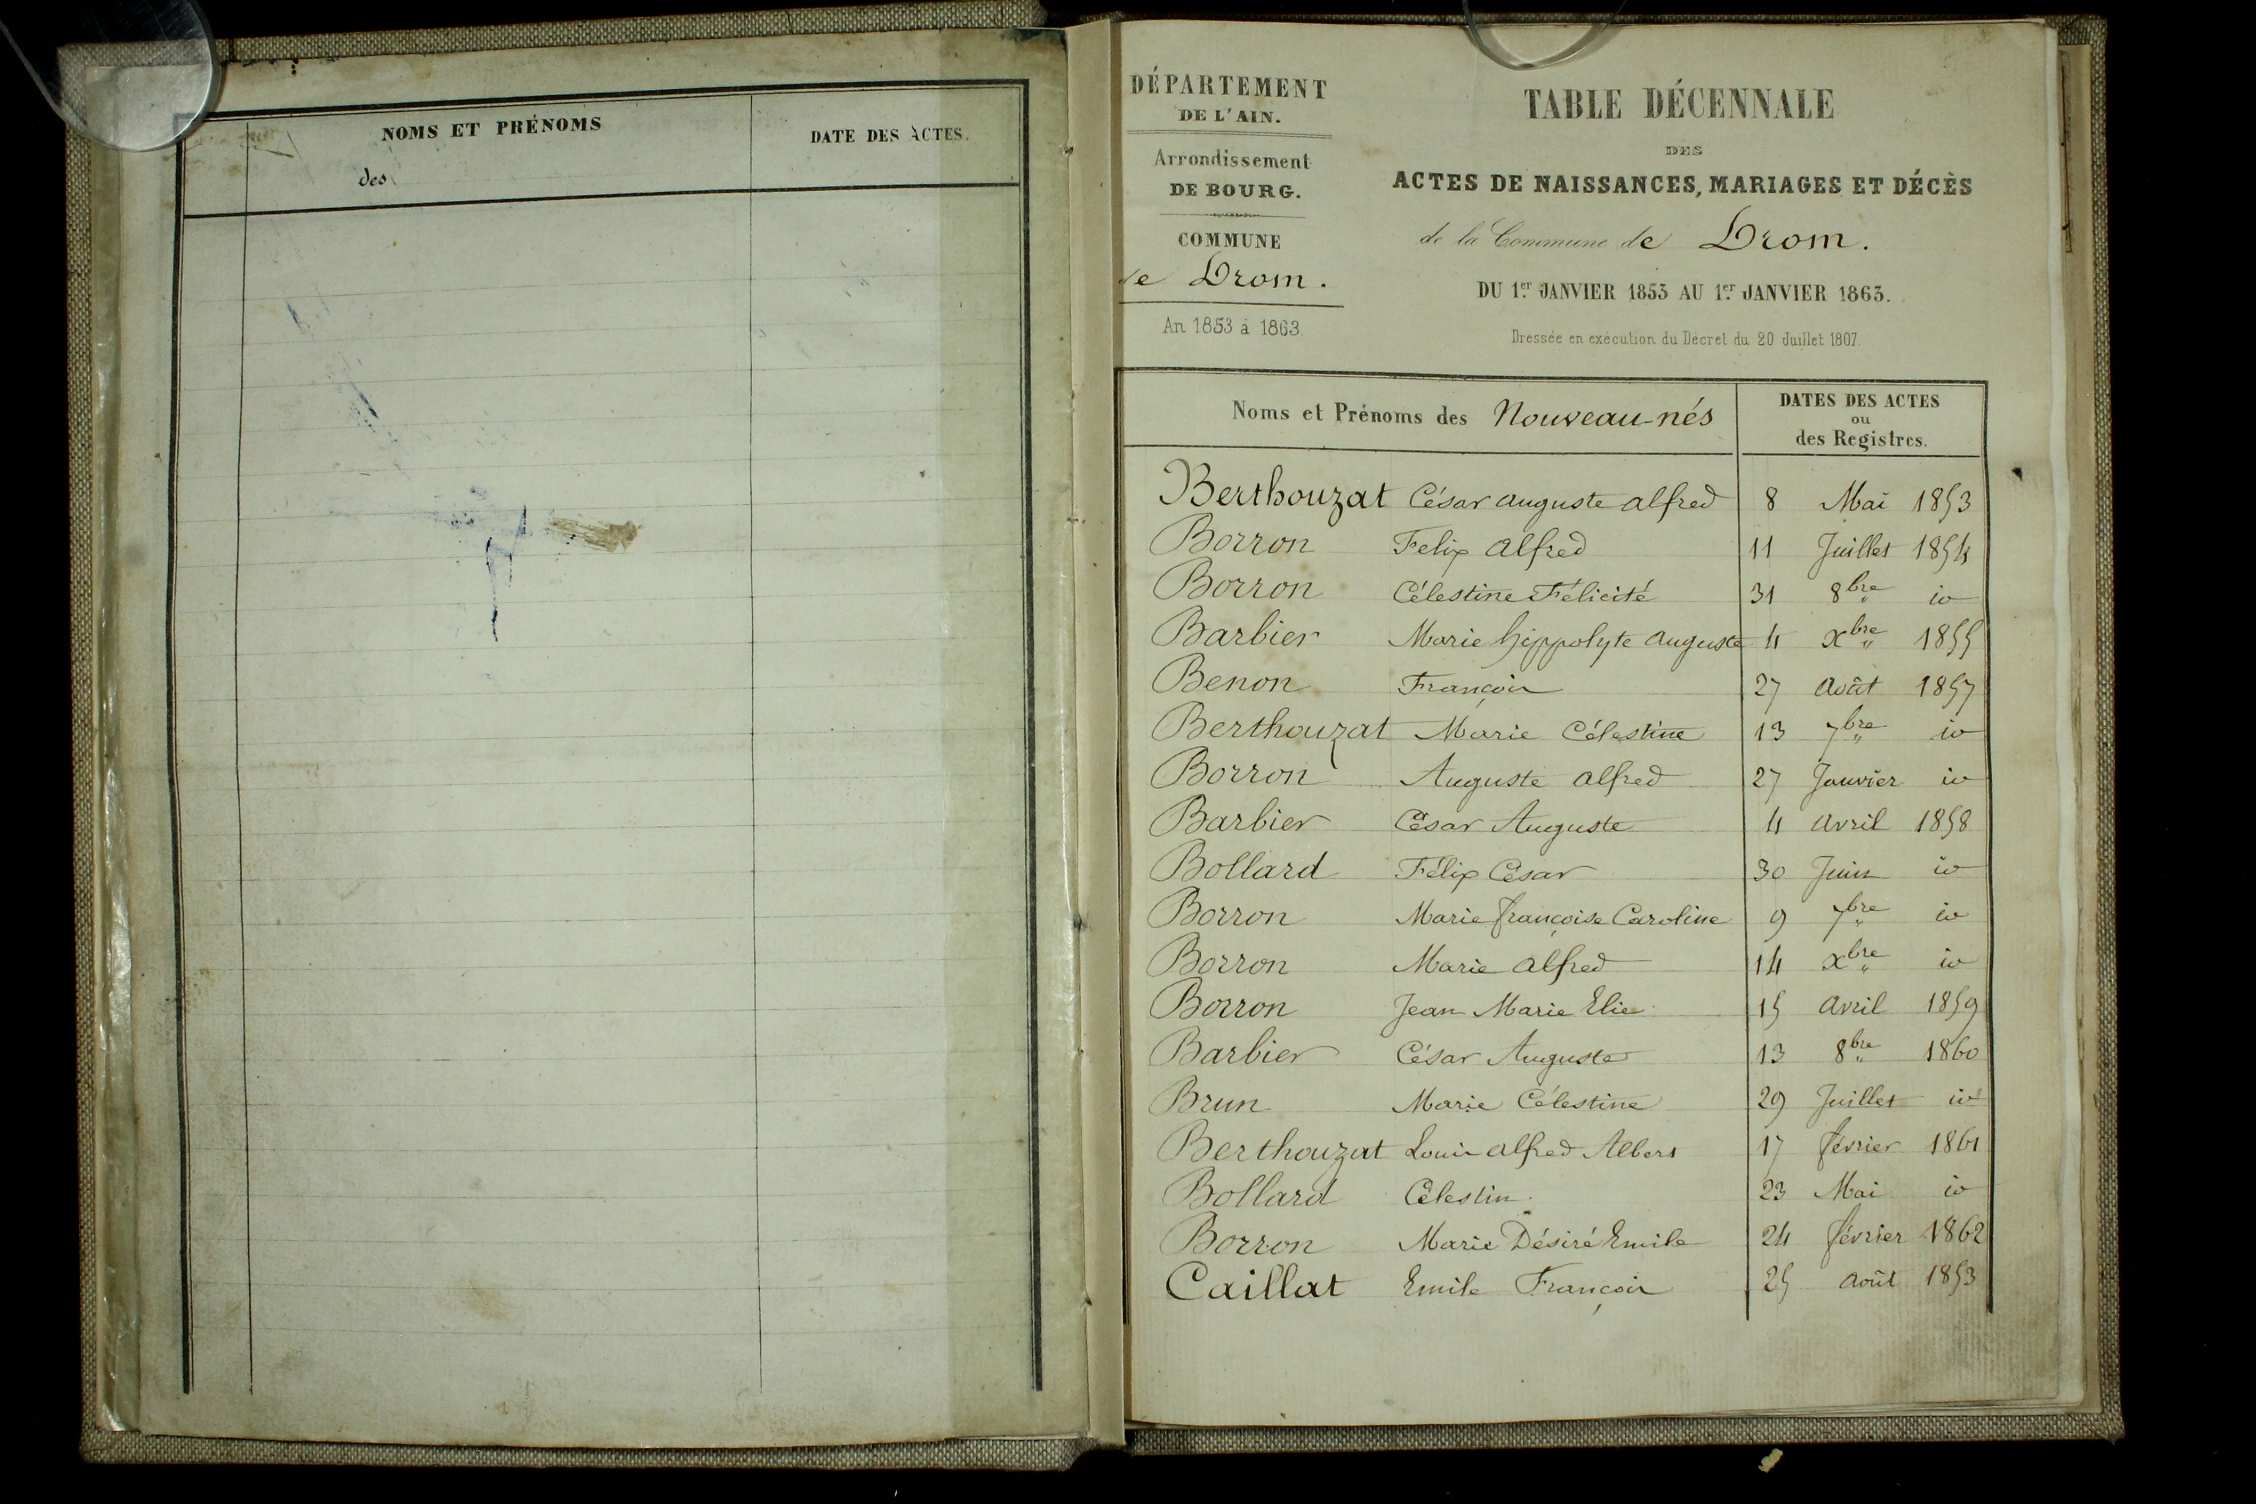 NOMS ET PRÉNOMS
des
DATE DES ACTES.
DÉPARTEMENT
DE L'AIN.
Arrondissement
DE BOURG.
COMMUNE
de Drom.
An 1853 à 1863
TABLE DÉCENNALE
DES
ACTES DE NAISSANCES, MARIAGES ET DÉCÈS
de la Commune de Drom.
DU 1er JANVIER 1853 AU 1er JANVIER 1863.
Dressée en exécution du Décret du 20 Juillet 1807.
Noms et Prénoms des Nouveau-nés
DATES DES ACTES
ou
des Registres.
Berthouzat César auguste alfred 8 Mai 1853
Borron Felix alfred 11 Juillet 1854
Borron Célestine Félicité 31 8bre id
Barbier Marie hippolyte auguste 4 xbre 1855
Benon François 27 Août 1857
Berthouzat Marie Célestine 13 7bre id
Borron Auguste alfred 27 Janvier id
Barbier César Auguste 4 avril 1858
Bollard Félix César 30 Juin id
Borron Marie françoise Caroline 9 7bre id
Borron Marie alfred 14 xbre id
Borron Jean Marie Elie 15 avril 1859
Barbier César Auguste 13 8bre 1860
Brun Marie Célestine 29 Juillet id
Berthouzat Louis alfred Albert 17 février 1861
Bollard Célestin. 23 Mai id
Borron Marie Désiré Emile 24 février 1862
Caillat Emile François 25 août 1853